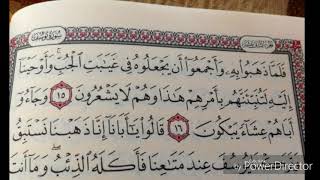 سورة يوسف
فَلَمَّا ذَهَبُوا۟ بِهِۦ وَأَجْمَعُوٓا۟ أَن يَجْعَلُوهُ فِى غَيَـٰبَتِ ٱلْجُبِّ ۚ وَأَوْحَيْنَآ
إِلَيْهِ لَتُنَبِّئَنَّهُم بِأَمْرِهِمْ هَـٰذَا وَهُمْ لَا يَشْعُرُونَ ١٥ وَجَآءُوٓ
أَبَاهُمْ عِشَآءً يَبْكُونَ ١٦ قَالُوا۟ يَـٰٓأَبَانَآ إِنَّا ذَهَبْنَا نَسْتَبِقُ
يُوسُفَ عِندَ مَتَـٰعِنَا فَأَكَلَهُ ٱلذِّئْبُ ۖ وَمَآ أَنتَ
PowerDirector